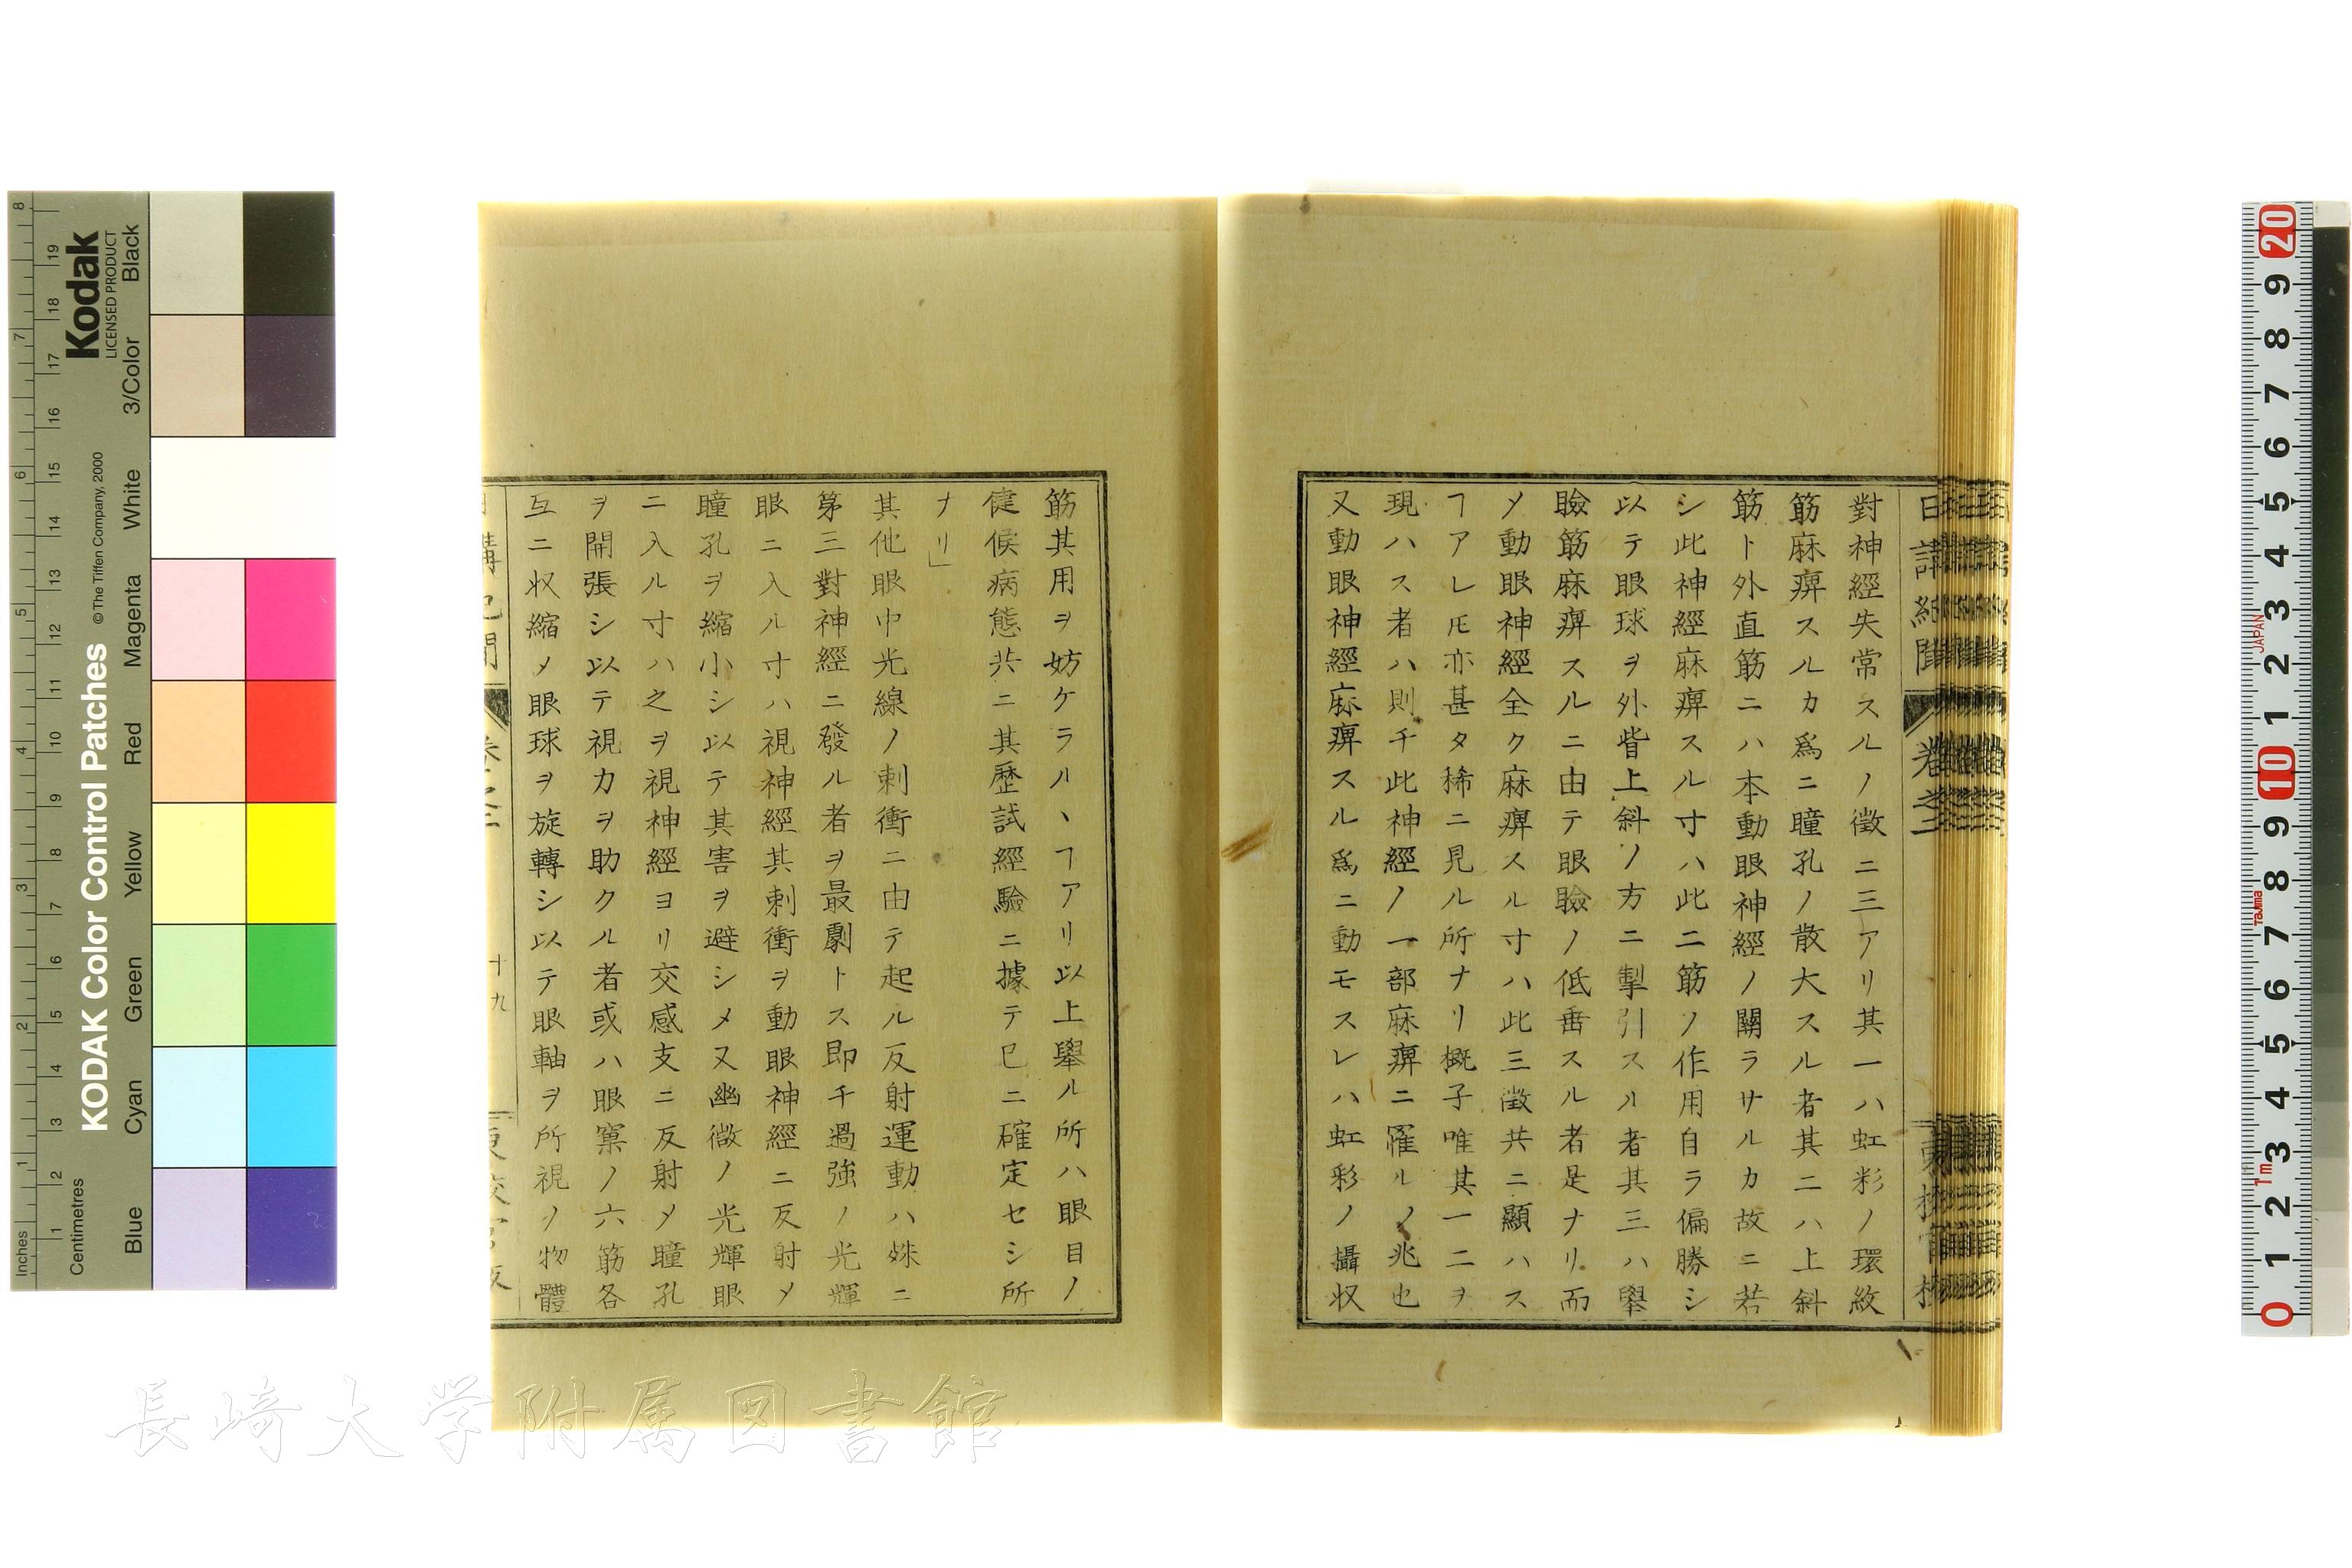 對神經失常スルノ徴ニ三アリ其一ハ虹彩ノ環紋
筋麻痺スルカ爲ニ瞳孔ノ散大スル者其二ハ上斜
筋ト外直筋ニハ本動眼神經ノ關ラサルカ故ニ若
シ此神經麻痺スル寸ハ此二筋ノ作用自ラ偏勝シ
以テ眼球ヲ外眥上斜ノ方ニ掣引スル者其三ハ擧
瞼筋麻痺スルニ由テ眼瞼ノ低垂スル者是ナリ而
メ動眼神經全ク麻痺スル寸ハ此三徴共ニ顯ハス
ヿアレ𪜈亦甚タ稀ニ見ル所ナリ概子唯其一二ヲ
現ハス者ハ則チ此神經ノ一部麻痺ニ罹ルノ兆也
又動眼神經麻痺スル爲ニ動モスレハ虹彩ノ攝収
筋其用ヲ妨ケラルヽヿアリ以上擧ル所ハ眼目ノ
健候病態共ニ其歴試經驗ニ據テ已ニ確定セシ所
ナリ」
其他眼中光線ノ刺衝ニ由テ起ル反射運動ハ殊ニ
第三對神經ニ發ル者ヲ最劇トス即チ過強ノ光輝
眼ニ入ル寸ハ視神經其刺衝ヲ動眼神經ニ反射メ
瞳孔ヲ縮小シ以テ其害ヲ避シメ又幽微ノ光輝眼
ニ入ル寸ハ之ヲ視神經ヨリ交感支ニ反射メ瞳孔
ヲ開張シ以テ視力ヲ助クル者或ハ眼窠ノ六筋各
互ニ収縮メ眼球ヲ旋轉シ以テ眼軸ヲ所視ノ物體
十九
長崎大学附属図書館
Kodak
LICENSED PRODUCT
KODAK Color Control Patches
© The Tiffen Company, 2000
Blue Cyan Green Yellow Red Magenta White 3/Color Black
Inches 1 2 3 4 5 6 7 8
Centimetres 1 2 3 4 5 6 7 8 9 10 11 12 13 14 15 16 17 18 19
20 9 8 7 6 5 4 3 2 1 10 9 8 7 6 5 4 3 2 1 0
JAPAN
Tajima
1m